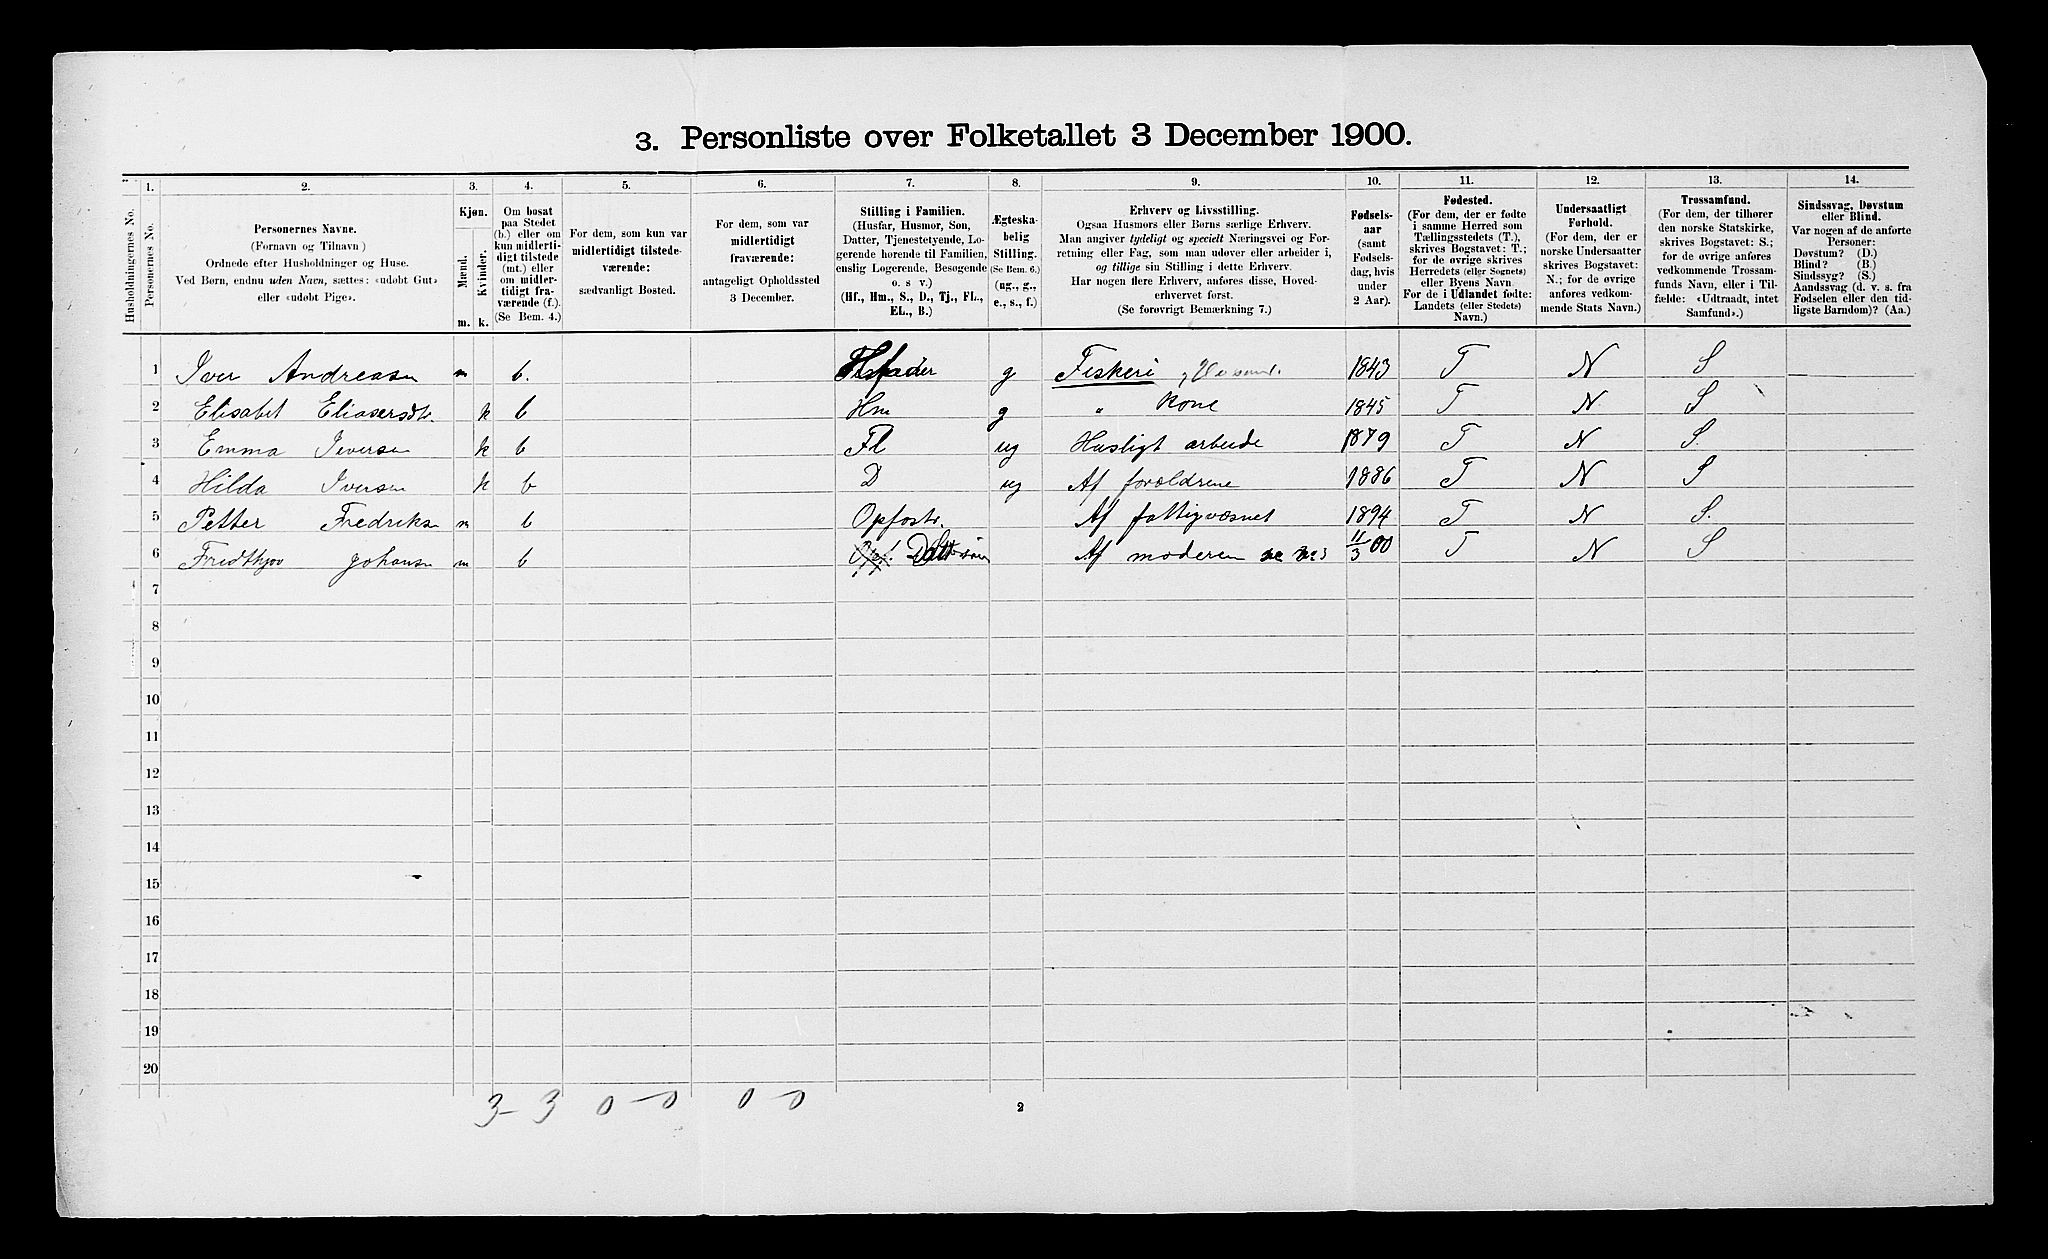 3. Personliste over Folketallet 3 December 1900.
Husholdningernes No.
1. Personernes No.
2. Personernes Navne.
(Fornavn og Tilnavn)
Ordnede efter Husholdninger og Huse.
Ved Børn, endnu uden Navn, sættes: «udøbt Gut»
eller «udøbt Pige».
3. Kjøn.
Mænd. m.
Kvinder. k.
4. Om bosat
paa Stedet
(b.) eller om
kun midlerti-
digt tilstede
(mt.) eller
om midler-
tidigt fra-
værende (f.)
(Se Bem. 4.)
5. For dem, som kun var
midlertidigt tilstede-
værende:
sædvanligt Bosted.
6. For dem, som var
midlertidigt
fraværende:
antageligt Opholdssted
3 December.
7. Stilling i Familien.
(Husfar, Husmor, Søn,
Datter, Tjenestetyende, Lo-
gerende hørende til Familien,
enslig Logerende, Besøgende
o. s v.)
(Hf., Hm., S., D., Tj., FL.,
EL., B.)
8. Ægteska-
belig
Stilling.
(Se Bem. 6.)
(ug., g.,
e., s., f.)
9. Erhverv og Livsstilling.
Ogsaa Husmors eller Børns særlige Erhverv.
Man angiver tydeligt og specielt Næringsvei og For-
retning eller Fag, som man udøver eller arbeider i,
og tillige sin Stilling i dette Erhverv.
Har nogen flere Erhverv, anføres disse, Hoved-
erhvervet først.
(Se forøvrigt Bemærkning 7.)
10. Fødsels-
aar
(samt
Fødsels-
dag, hvis
under
2 Aar).
11. Fødested.
(For dem, der er fødte
i samme Herred som
Tællingsstedets (T.),
skrives Bogstavet: T.;
for de øvrige skrives
Herredets (eller Sognets)
eller Byens Navn.
For de i Udlandet fødte:
Landets (eller Stedets)
Navn.)
12. Undersaatligt
Forhold.
(For dem, der er
norske Undersaatter
skrives Bogstavet:
N.; for de øvrige
anføres vedkom-
mende Stats Navn.)
13. Trossamfund.
(For dem, der tilhører
den norske Statskirke,
skrives Bogstavet: S.;
for de øvrige anføres
vedkommende Trossam-
funds Navn, eller i Til-
fælde: «Udtraadt, intet
Samfund».)
14. Sindssvag, Døvstum
eller Blind.
Var nogen af de anførte
Personer:
Døvstum? (D.)
Blind? (B.)
Sindssyg? (S.)
Aandssvag (d. v. s. fra
Fødselen eller den tid-
ligste Barndom)? (Aa.)
1 Iver Andreasen m b. Husfader g Fiskeri 1843 T N S
2 Elisabet Eliasersdtr. k b Hm g " kone 1845 T N S
3 Emma Iversen k b Fl ug Husligt arbeide 1879 T N S.
4 Hilda Iversen k b D ug Af forældrene 1886 T N S
5 Petter Fredriksen m b Opfostr. Af fattigvæsnet 1894 T N S.
6 Fridthjov Johansen m b Datt søn Af moderen 11/3 00 T N S
7
8
9
10
11
12
13
14
15
16
17
18
19
20
3 - 3 0 - 0 0 - 0
2